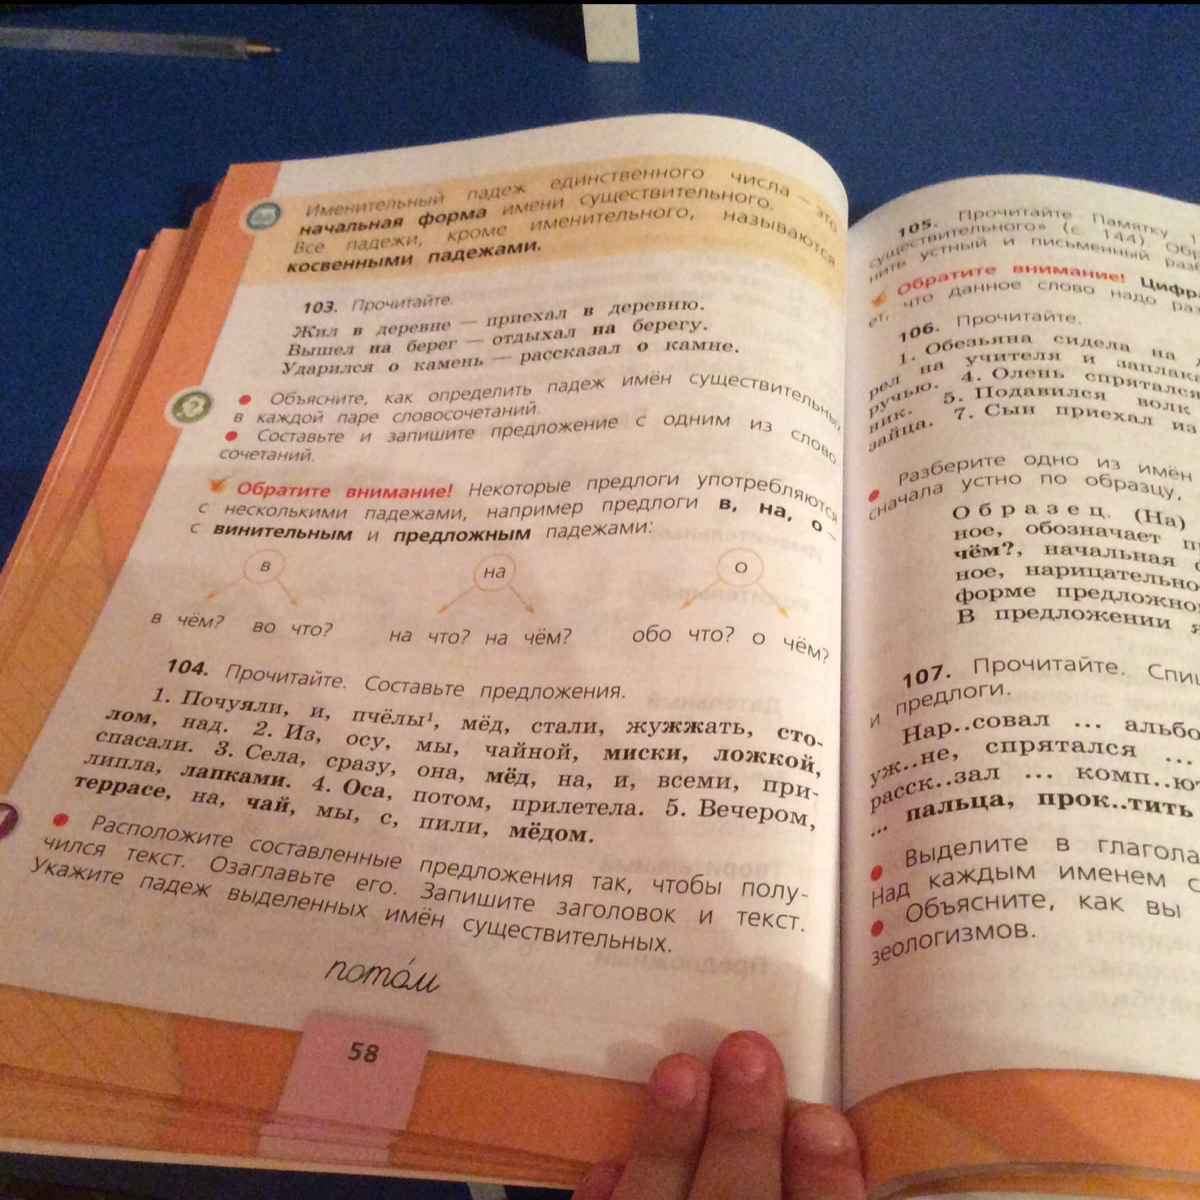 Именительный падеж единственного числа — это
начальная форма имени существительного.
Все падежи, кроме именительного, называются
косвенными падежами.
103. Прочитайте.
Жил в деревне — приехал в деревню.
Вышел на берег — отдыхал на берегу.
Ударился о камень — рассказал о камне.
● Объясните, как определить падеж имён существительных
в каждой паре словосочетаний.
● Составьте и запишите предложение с одним из слово-
сочетаний.
Обратите внимание! Некоторые предлоги употребляются
с несколькими падежами, например предлоги в, на, о –
с винительным и предложным падежами:
в на о
в чём? во что? на что? на чём? обо что? о чём?
104. Прочитайте. Составьте предложения.
1. Почуяли, и, пчёлы¹, мёд, стали, жужжать, сто-
лом, над. 2. Из, осу, мы, чайной, миски, ложкой,
спасали. 3. Села, сразу, она, мёд, на, и, всеми, при-
липла, лапками. 4. Оса, потом, прилетела. 5. Вечером,
террасе, на, чай, мы, с, пили, мёдом.
● Расположите составленные предложения так, чтобы полу-
чился текст. Озаглавьте его. Запишите заголовок и текст.
Укажите падеж выделенных имён существительных.
пото́м
58
105. Прочитайте Памятку 1
существительного» (с. 144). Об
нить устный и письменный раз
Обратите внимание! Цифра
ет, что данное слово надо раз
106. Прочитайте.
1. Обезьяна сидела на д
рел на учителя и заплак
ручью. 4. Олень спрятался
ник. 5. Подавился волк
зайца. 7. Сын приехал из
● Разберите одно из имён
сначала устно по образцу,
Образец. (На)
ное, обозначает п
чём?, начальная ф
ное, нарицательно
форме предложно
В предложении я
107. Прочитайте. Спи
и предлоги.
Нар..совал ... альбо
уж..не, спрятался ...
расск..зал ... комп..ют
... пальца, прок..тить
● Выделите в глагола
Над каждым именем с
● Объясните, как вы
зеологизмов.